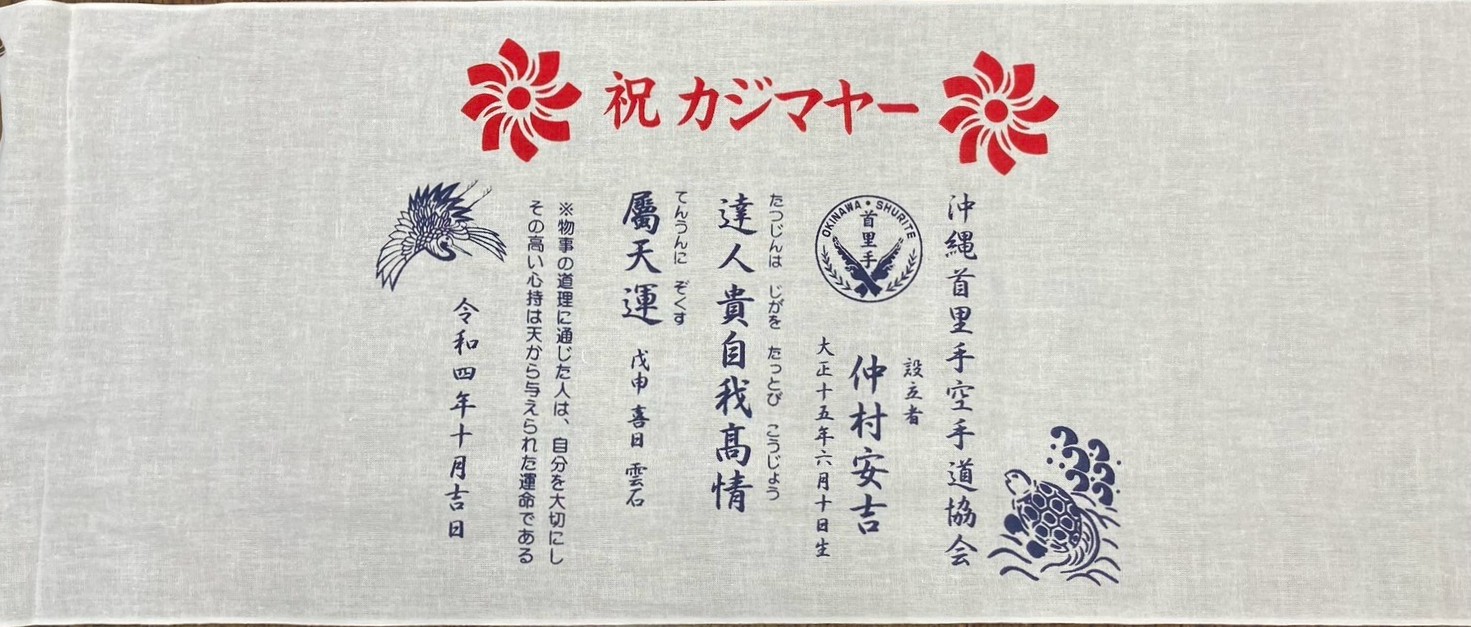 祝 カジマヤー
沖縄首里手空手道協会
設立者
仲村安吉
OKINAWA・SHURITE
首里手
大正十五年六月十日生
たつじんは じがを たっとび こうじょう
達人貴自我髙情
てんうんに ぞくす
屬天運
戊申 喜日 雲石
※物事の道理に通じた人は、自分を大切にし
その高い心持は天から与えられた運命である
令和四年十月吉日